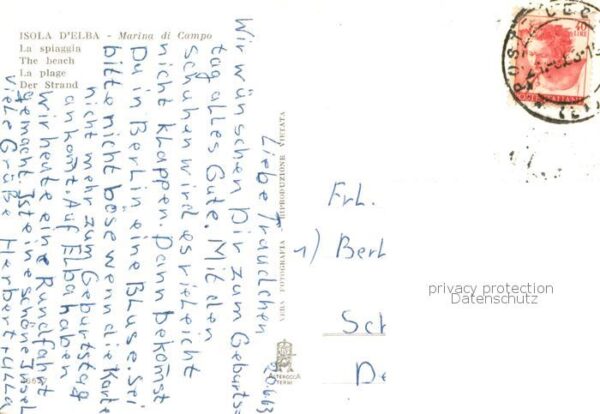 ISOLA D'ELBA - Marina di Campo
La spiaggia
The beach
La plage
Der Strand
20.6.63
Liebe Traudchen
Wir wünschen Dir zum Geburts-
tag alles Gute. Mit den
suchen wird es vieleicht
nicht klappen. Dann bekomst
Du in Berlin eine Bluse. Sei
bitte nicht böse wenn die Karte
nicht mehr zum Geburtstag
ankomt. Auf Elba haben
wir heute eine Rundfahrt
gemacht. Ist eine schöne Insel
viele Grüße Herbert
VERA FOTOGRAFIA - RIPRODUZIONE VIETATA
Frl.
1) Berl
Sch
De
privacy protection
Datenschutz
40
LIRE
ALTEROCCA
TERNI